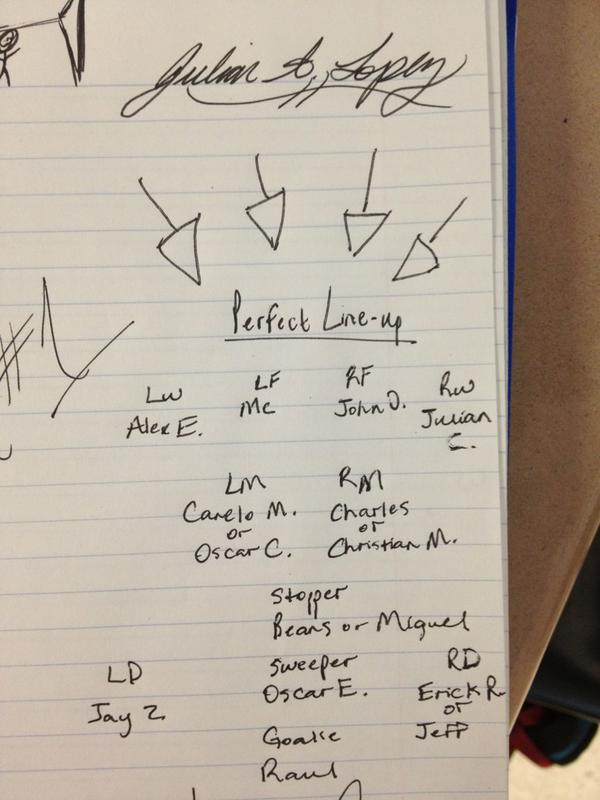 Julian Lopez
Perfect Line-up
LW LF RF RW
Alex E. Me John O. Julian C.
LM RM
Canelo M. Charles
or or
Oscar C. Christian M.
Stopper
Beans or Miguel
LD Sweeper RD
Jay Z. Oscar E. Erick R.
or
Goalie Jeff
Raul